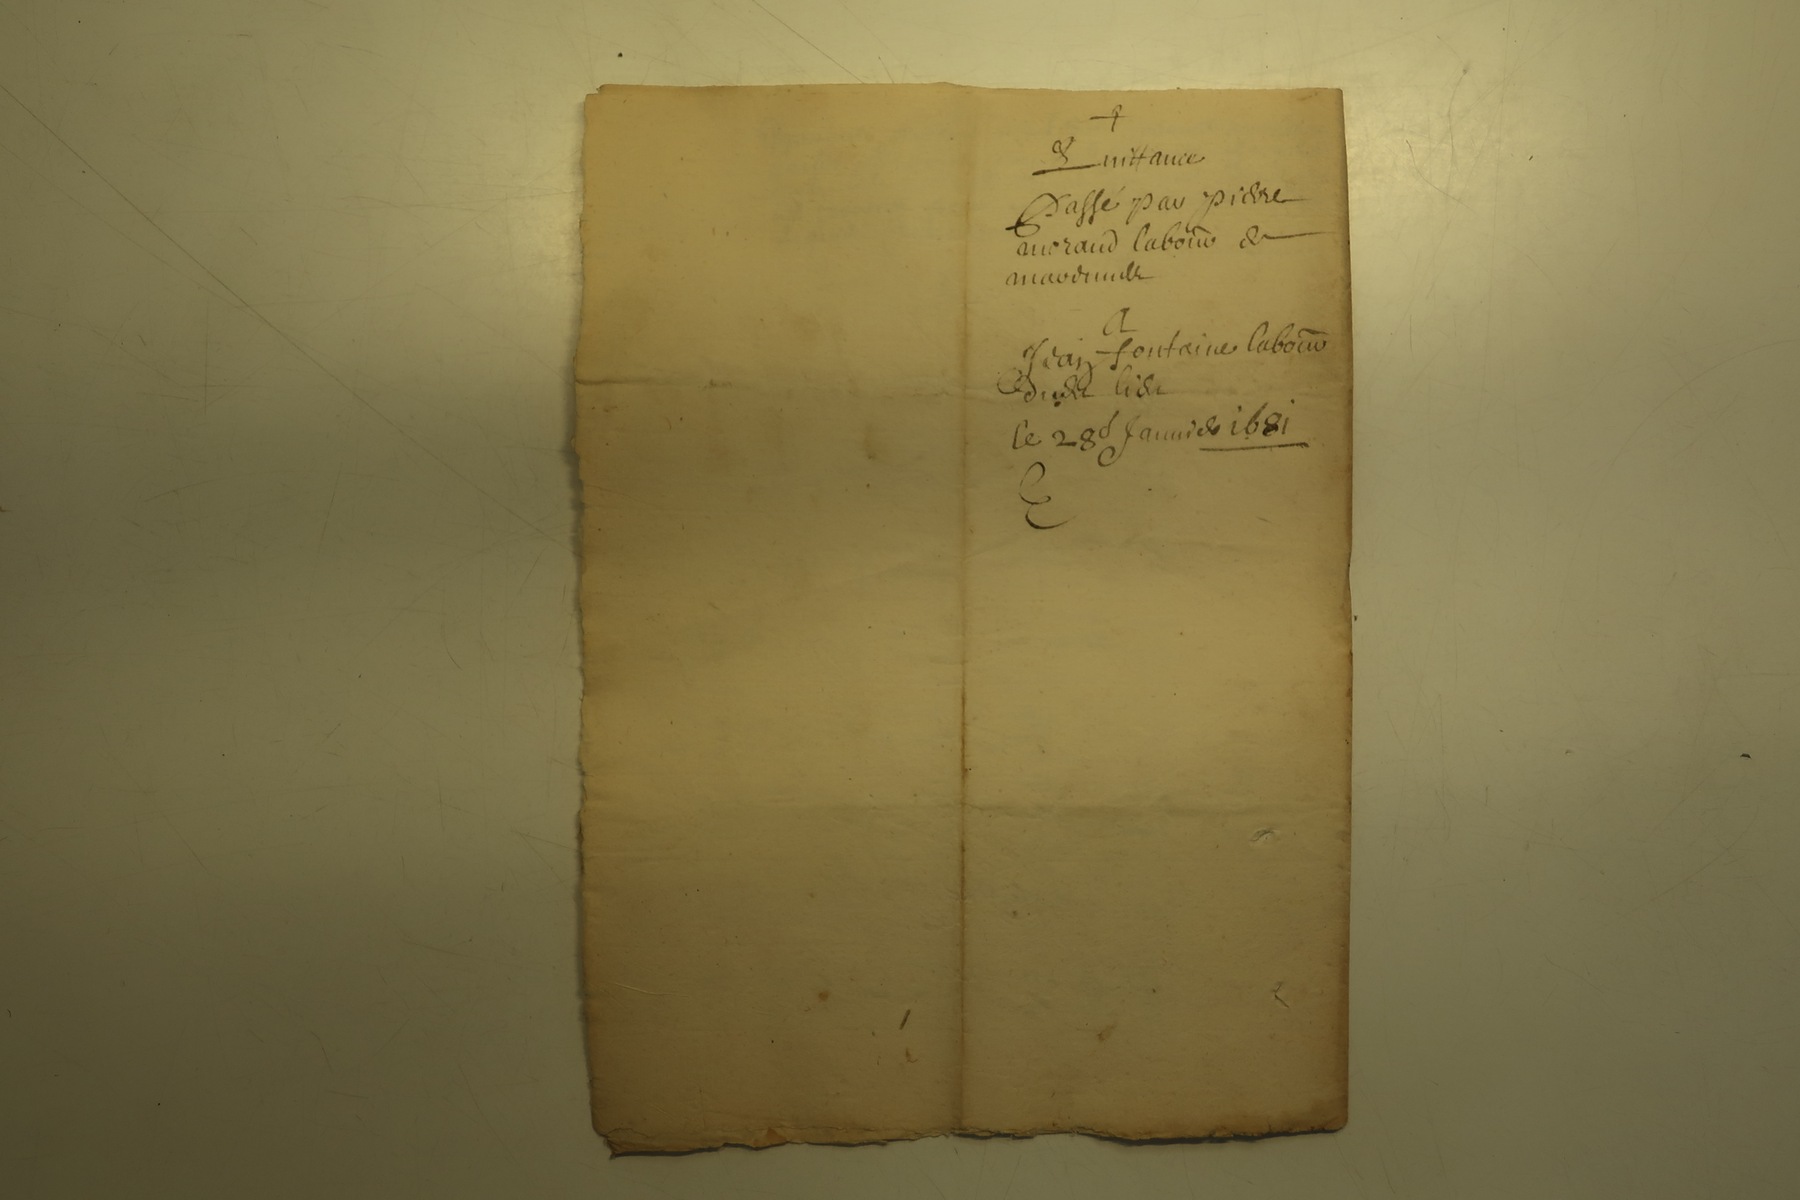 +
Quittance
Passé par pierre
morand labour de
A
Jean fontaine labour
dudt lieu
le 28d Januier 1681